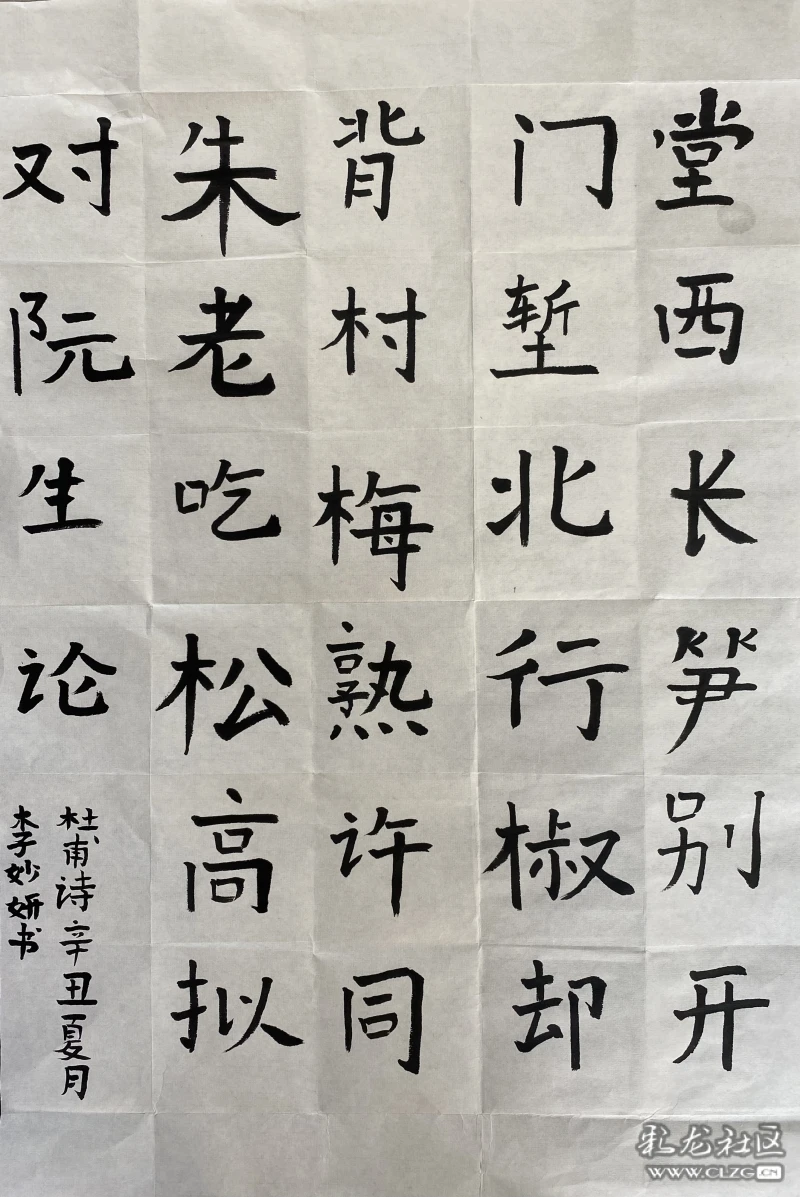 堂西长笋别开
门堑北行椒却
背村梅熟许同
朱老吃松高拟
对阮生论
杜甫诗辛丑夏月
李妙妍书
彩龙社区
WWW.CLZG.CN